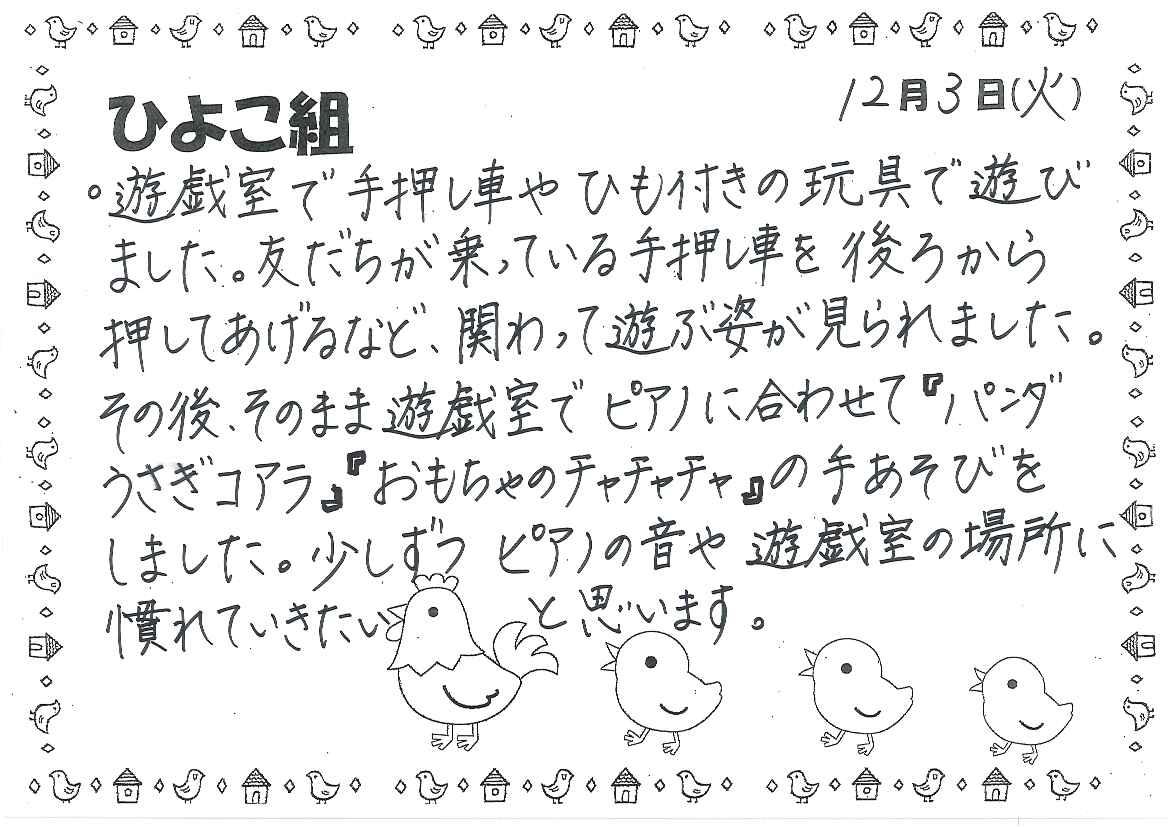 12月3日(火)
ひよこ組
。遊戯室で手押し車やひも付きの玩具で遊び
ました。友だちが乗っている手押し車を後ろから
押してあげるなど、関わって遊ぶ姿が見られました。
その後、そのまま遊戯室でピアノに合わせて『パンダ
うさぎコアラ』『おもちゃのチャチャチャ』の手あそびを
しました。少しずつ ピアノの音や遊戯室の場所に
慣れていきたいと思います。